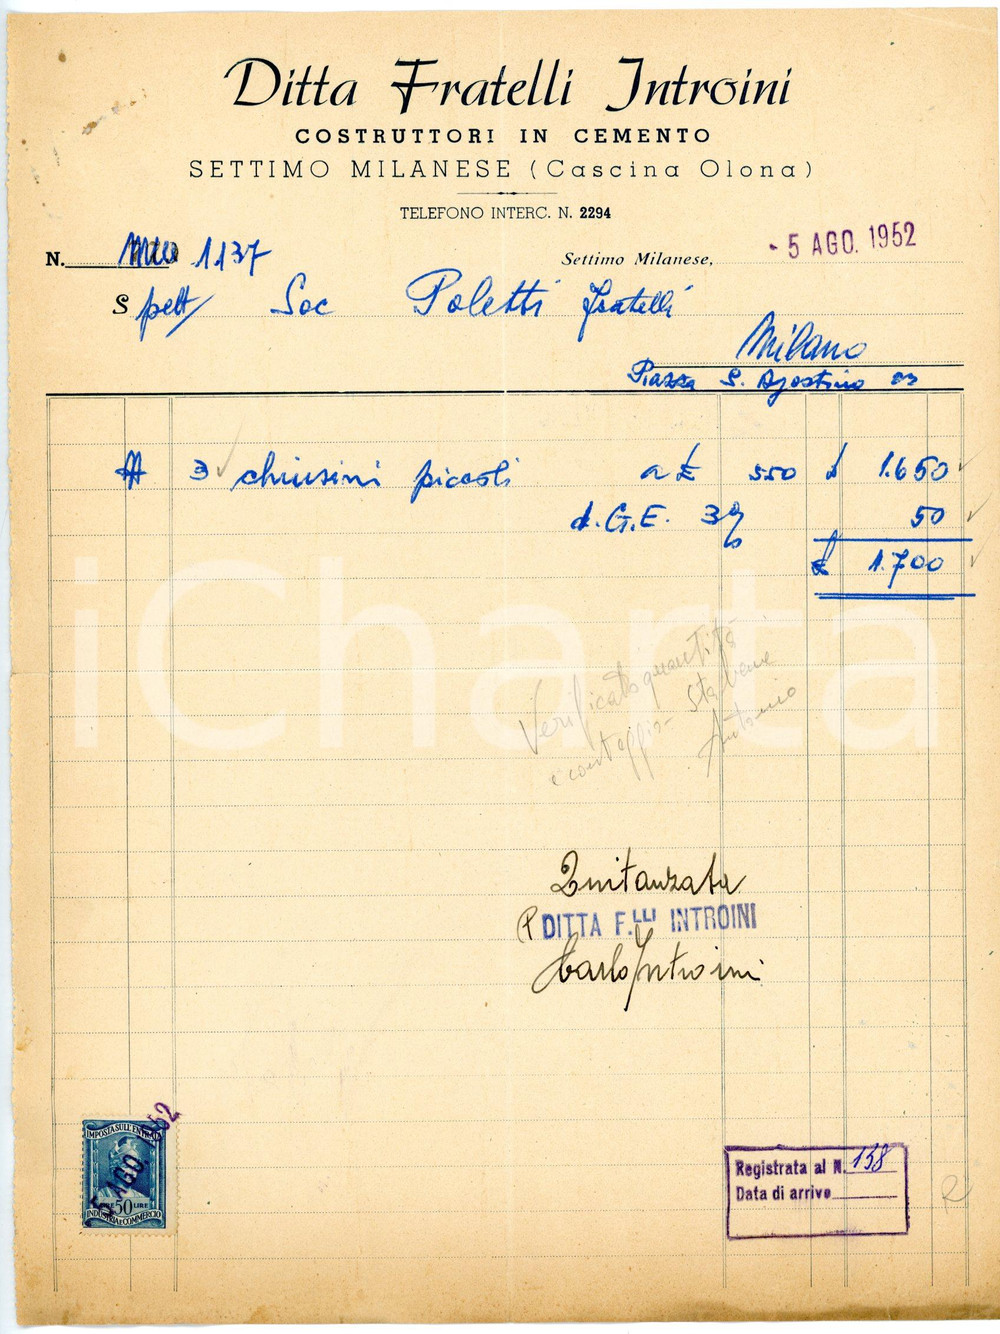 Ditta Fratelli Introini
COSTRUTTORI IN CEMENTO
SETTIMO MILANESE (Cascina Olona)
TELEFONO INTERC. N. 2294
N. 1137
Settimo Milanese, - 5 AGO. 1952
Spett/ Soc Poletti Fratelli
Milano
Piazza S. Agostino
3 chiusini piccoli a £ 550 £ 1.650
I.G.E. 3% 50
£ 1.700
iCharta
Verificato quantità
e conteggio
Antonio
Quitanzata
P DITTA F.LLI INTROINI
Carlo Introini
5 AGO. 1952
IMPOSTA SULL'ENTRATA
LIRE 50 LIRE
INDUSTRIA E COMMERCIO
Registrata al N. 138
Data di arrivo